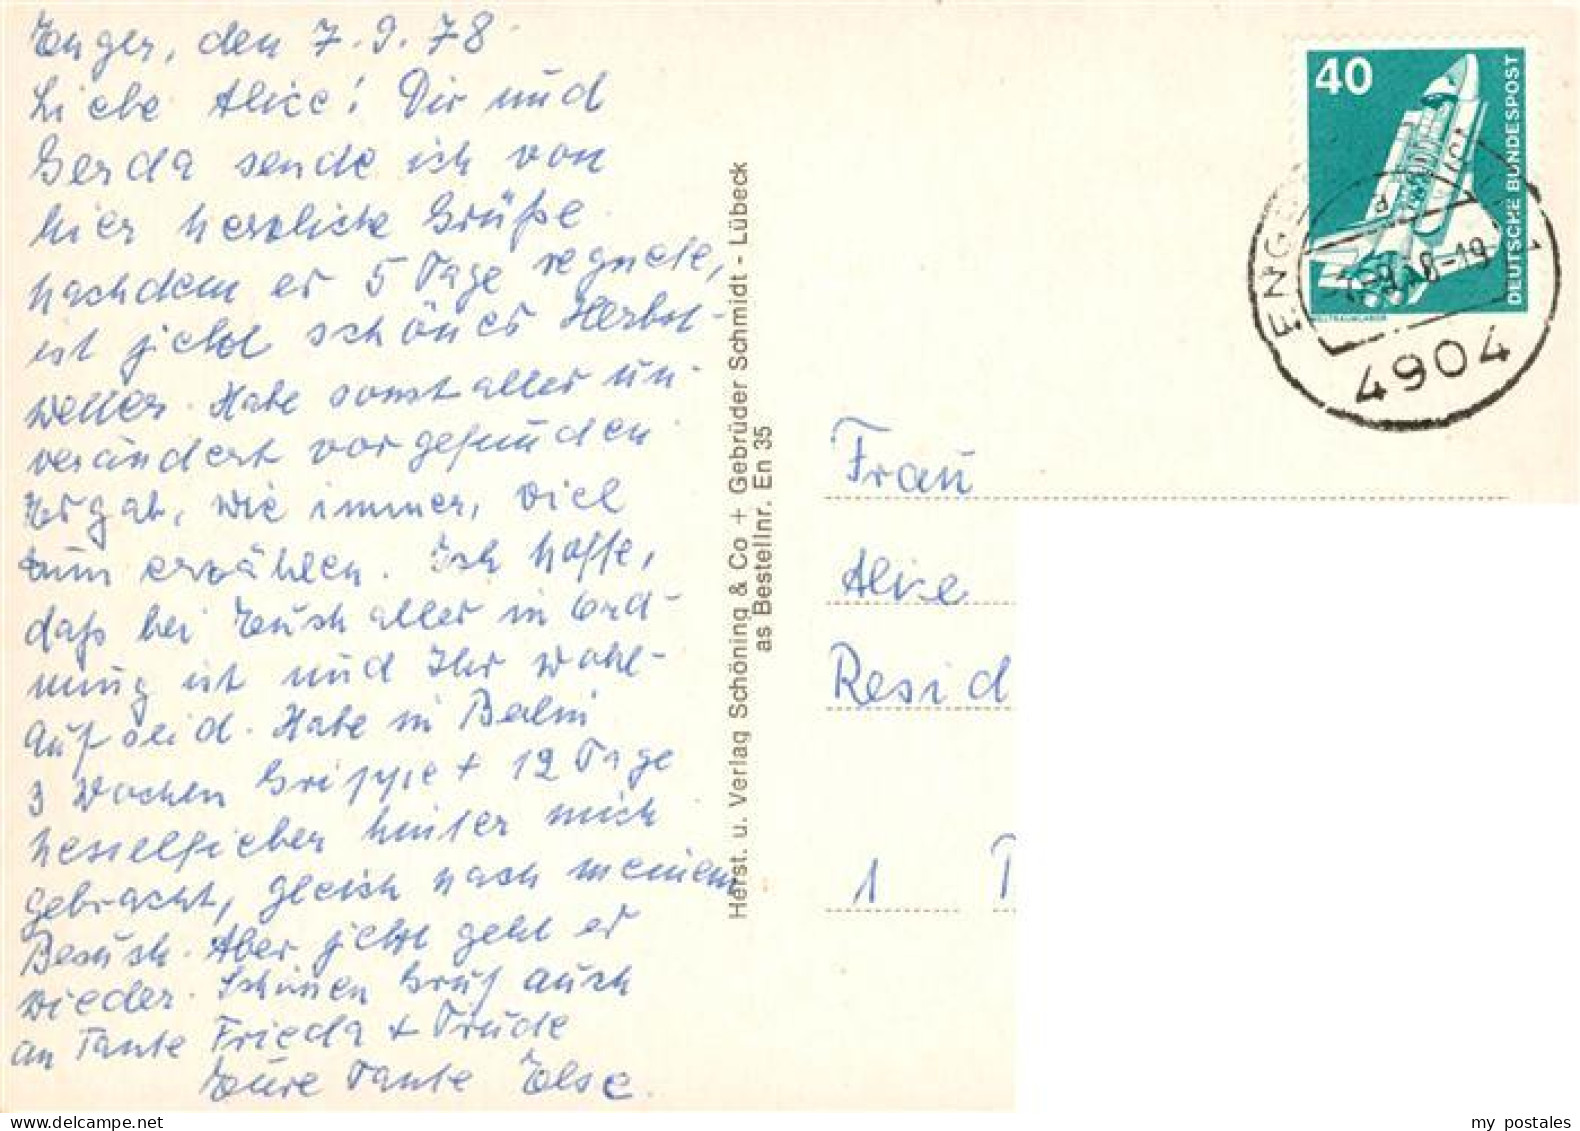 Enger, den 7.9.78
Liebe Alice! Dir und
Gerda sende ich von
hier herzliche Grüße
nachdem es 5 Tage regnete,
ist jetzt schönes Herbst-
wetter. Habe sonst alles un-
verändert vorgefunden
Es gab, wie immer, viel
zum erzählen. Ich hoffe,
daß bei Euch alles in Ord-
nung ist und Ihr wohl-
auf seid. Habe in Berlin
3 Wochen Grippe + 12 Tage
Nesselfieber hinter mich
gebracht, gleich nach meinem
Besuch. Aber jetzt geht es
wieder. Schönen Gruß auch
an Tante Frieda + Trude
Eure Tante Else.
Herst. u. Verlag Schöning & Co + Gebrüder Schmidt - Lübeck
as Bestellnr. En 35
40
DEUTSCHE BUNDESPOST
WELTRAUMLABOR
4904
Frau
Alice
Resid
1
my postales